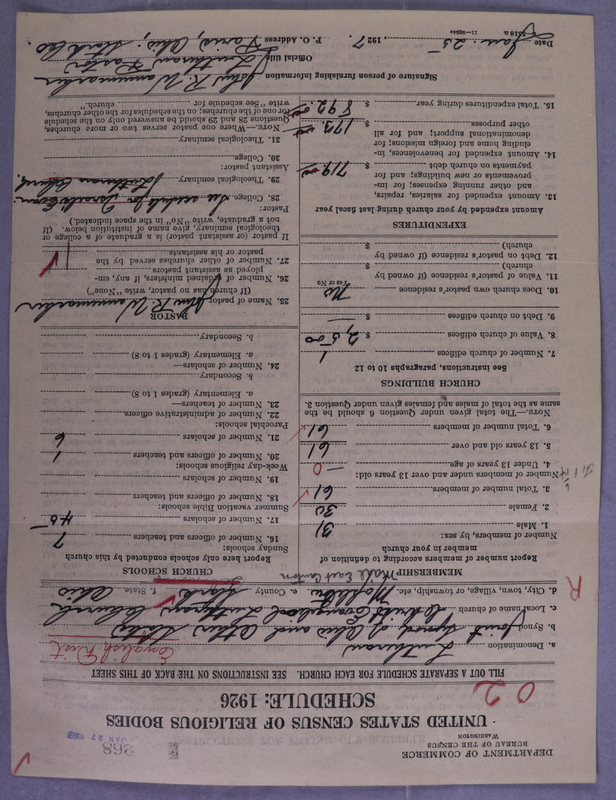 DEPARTMENT OF COMMERCE
BUREAU OF THE CENSUS
WASHINGTON
268
JAN 27 192
UNITED STATES CENSUS OF RELIGIOUS BODIES
SCHEDULE: 1926
FILL OUT A SEPARATE SCHEDULE FOR EACH CHURCH. SEE INSTRUCTIONS ON THE BACK OF THIS SHEET
02
English Dist
a. Denomination Lutheran
b. Synod Joint Synod of Ohio and Other States
c. Local name of church Evangelical Lutheran Church
d. City, town, village, or township, etc. e. County Stark f. State Ohio
R
MEMBERSHIP
Report number of members according to definition of member in your church
Number of members, by sex:
1. Male 31
2. Female 30
3. Total number of members 61
Number of members under and over 13 years old:
4. Under 13 years of age 0
5. 13 years old and over 61
6. Total number of members 61
NOTE.—The total given under Question 6 should be the same as the total of males and females given under Question 3.
CHURCH BUILDINGS
See instructions, paragraphs 10 to 12
7. Number of church edifices 1
8. Value of church edifices $ 2,500
9. Debt on church edifices $ —
10. Does church own pastor's residence No
Yes or No
11. Value of pastor's residence (if owned by church) $
12. Debt on pastor's residence (if owned by church) $
EXPENDITURES
Amount expended by your church during last fiscal year
13. Amount expended for salaries, repairs, and other running expenses; for improvements or new buildings; and for payments on church debt $ 719.00
14. Amount expended for benevolences, including home and foreign missions; for denominational support; and for all other purposes $ 173.00
15. Total expenditures during year $ 892.00
CHURCH SCHOOLS
Report here only schools conducted by this church
Sunday schools:
16. Number of officers and teachers 7
17. Number of scholars 45
Summer vacation Bible schools:
18. Number of officers and teachers
19. Number of scholars
Week-day religious schools:
20. Number of officers and teachers 1
21. Number of scholars 6
Parochial schools:
22. Number of administrative officers
23. Number of teachers—
a. Elementary (grades 1 to 8)
b. Secondary
24. Number of scholars—
a. Elementary (grades 1 to 8)
b. Secondary
PASTOR
25. Name of pastor John R.
(If church has no pastor, write "None")
26. Number of ordained ministers, if any, employed as assistant pastors
27. Number of other churches served by the pastor or his assistants 1
If pastor (or assistant pastor) is a graduate of a college or theological seminary, give name of institution below. (If not a graduate, write "No" in the space indicated.)
Pastor:
28. College See schedule for
29. Theological seminary Lutheran Church,
Assistant pastor:
30. College
31. Theological seminary
NOTE.—Where one pastor serves two or more churches, Questions 28 and 29 should be answered only on the schedule for one of the churches; on the schedules for the other churches, write "See schedule for church."
Signature of person furnishing information John R.
Official title Lutheran Pastor
P. O. Address Paris, Ohio, Stark Co
Date Jan. 25, 1927.